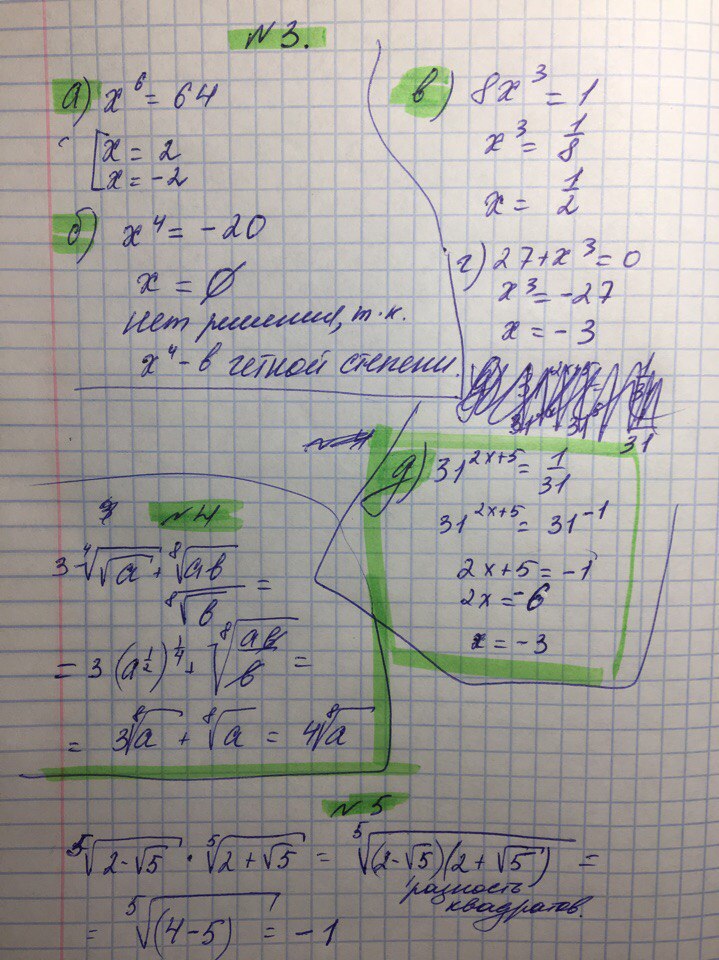 №3.
а) x⁶ = 64
[x = 2
x = -2
б) x⁴ = -20
x = ∅
Нет решения, т.к.
x⁴ - в четной степени.
в) 8x³ = 1
x³ = 1/8
x = 1/2
г) 27 + x³ = 0
x³ = -27
x = -3
д) 31^(2x+5) = 1/31
31^(2x+5) = 31^(-1)
2x+5 = -1
2x = -6
x = -3
№4
3·⁴√(√a) + ⁸√(ab)/⁸√b =
= 3(a^(1/2))^(1/4) + ⁸√(ab/b) =
= 3⁸√a + ⁸√a = 4⁸√a
№5
⁵√(2-√5) · ⁵√(2+√5) = ⁵√((2-√5)(2+√5)) =
разность
квадратов.
= ⁵√(4-5) = -1